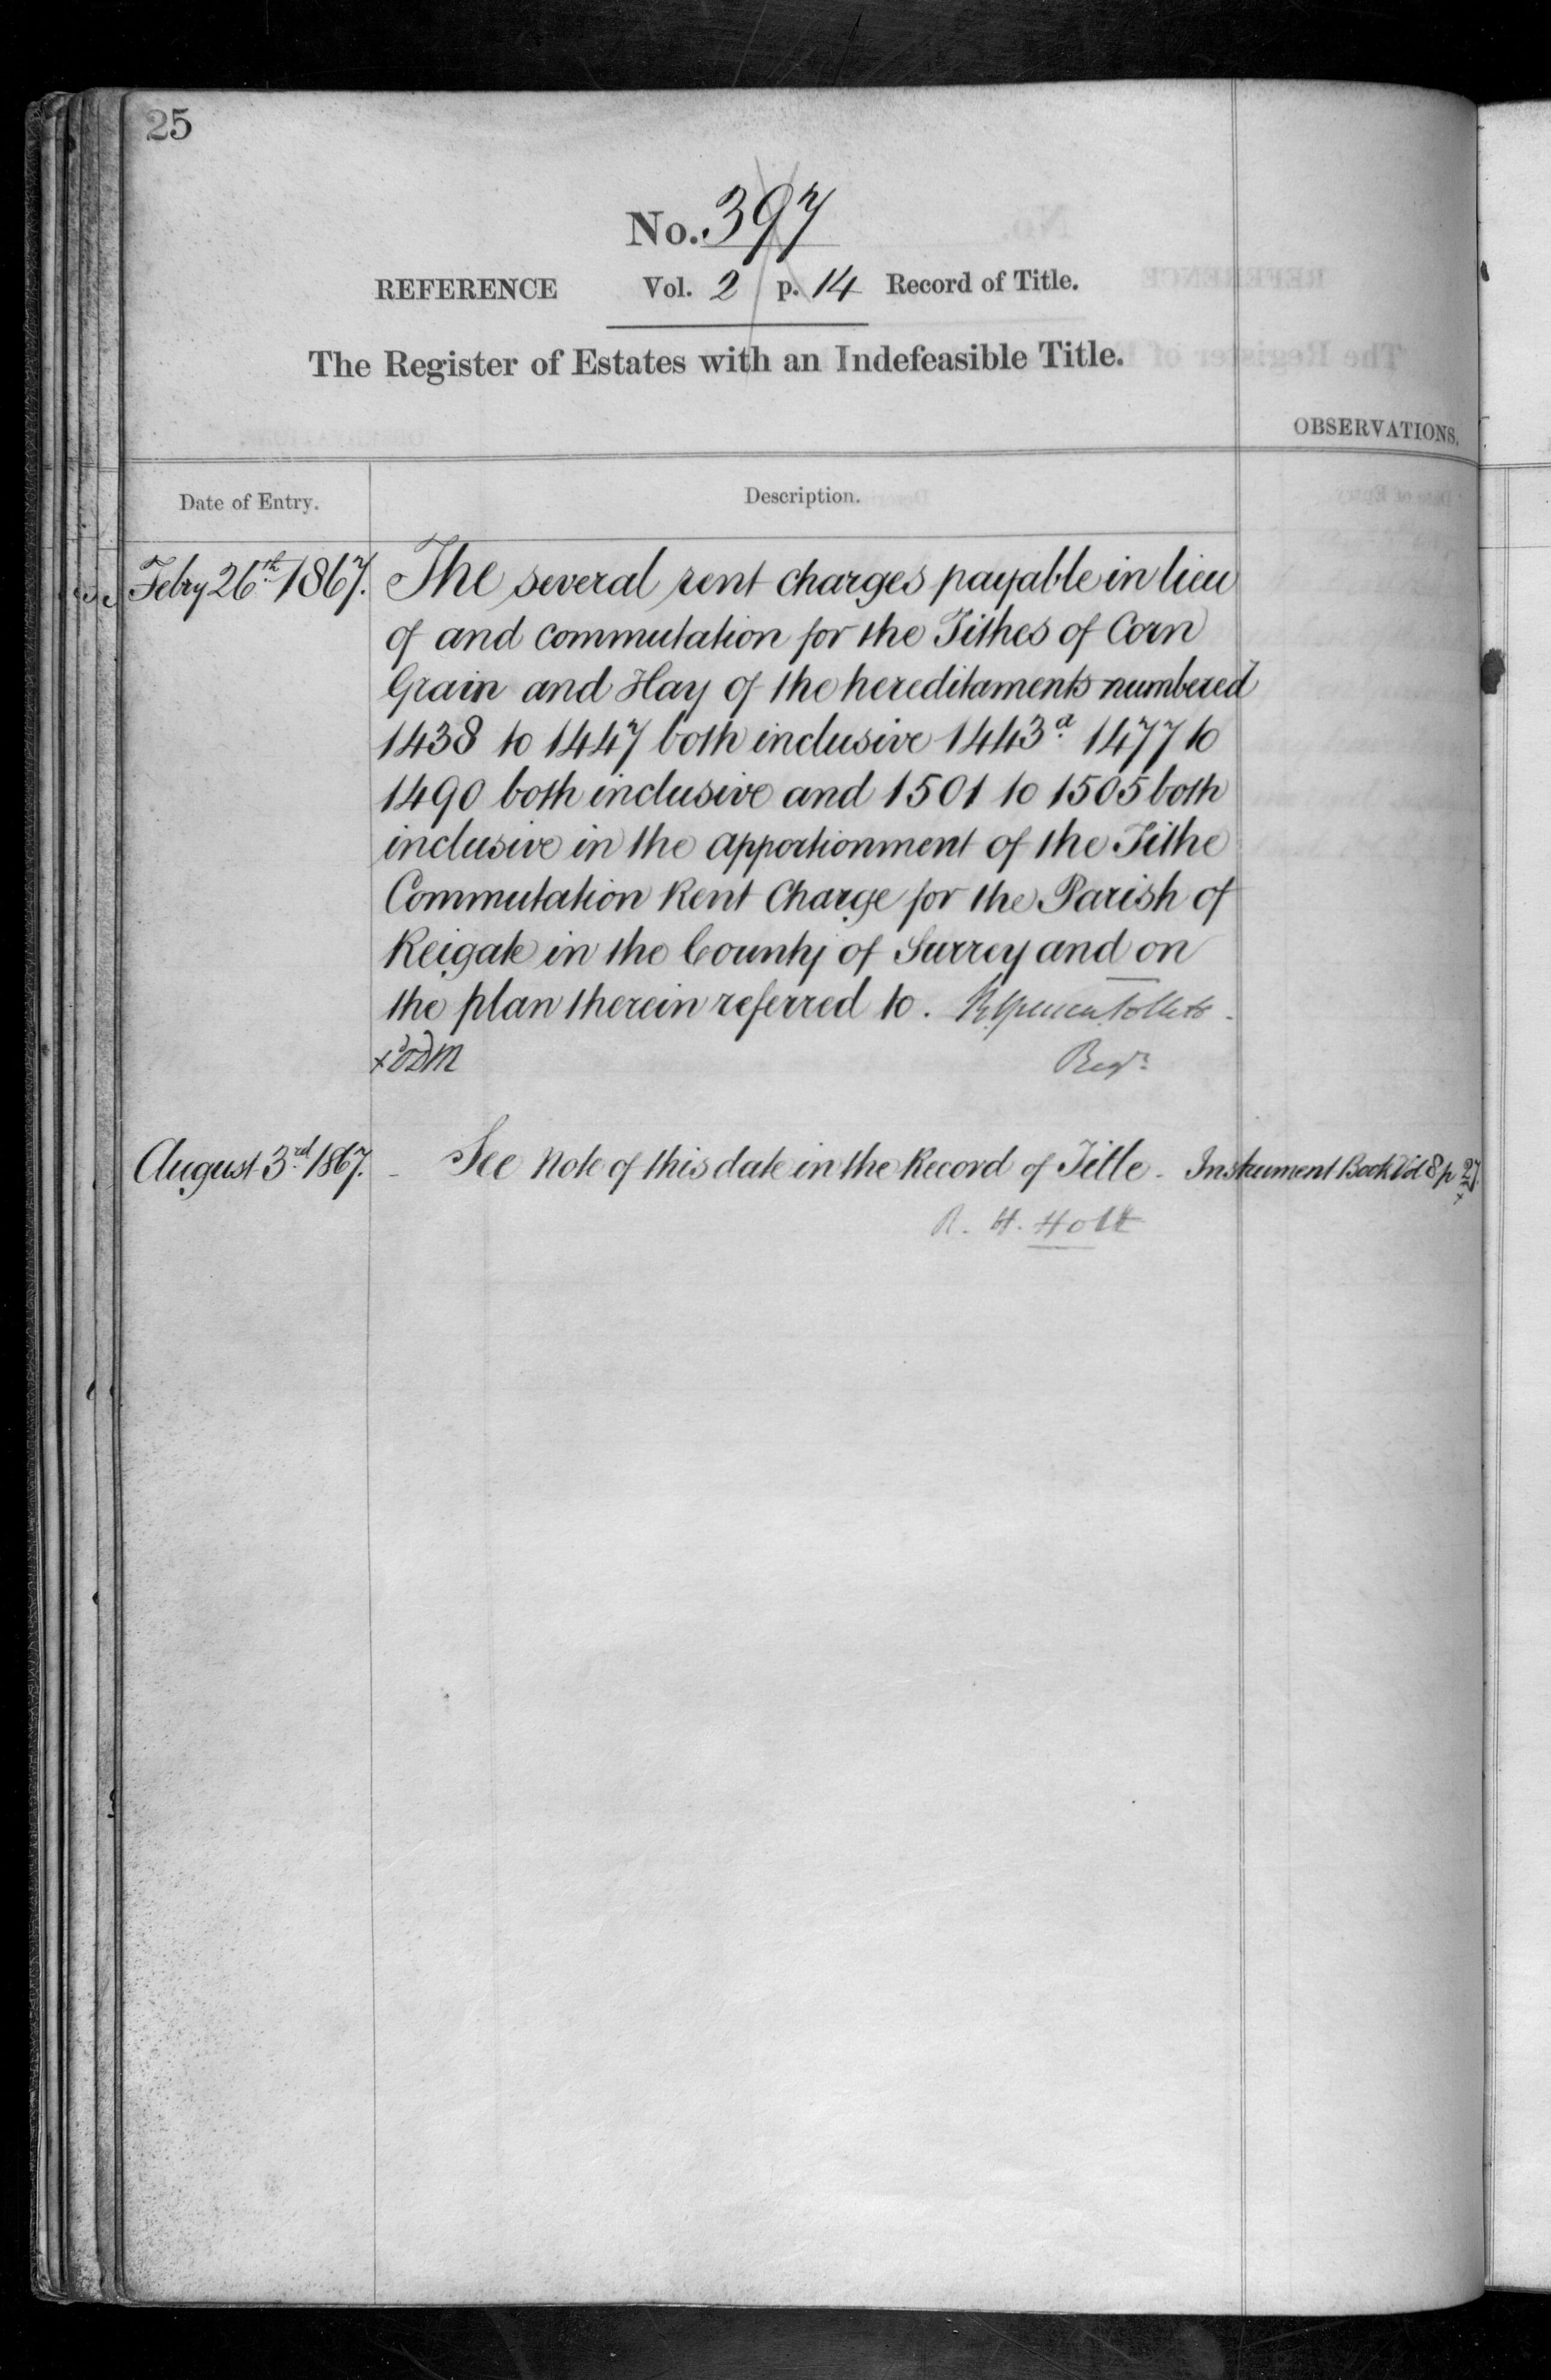 25
No. 397
REFERENCE Vol. 2 p. 14 Record of Title.
The Register of Estates with an Indefeasible Title.
OBSERVATIONS.
Date of Entry. Description.
Febry 26th 1867. The several rent charges payable in lieu
of and commutation for the Tithes of Corn
Grain and Hay of the hereditaments numbered
1438 to 1447 both inclusive 1443a 1477 to
1490 both inclusive and 1501 to 1505 both
inclusive in the apportionment of the Tithe
Commutation Rent Charge for the Parish of
Reigate in the County of Surrey and on
the plan therein referred to.
Regr
August 3rd 1867. - See Note of this date in the Record of Title - Instrument Book Vol 8 p 27.
R. H. Holt